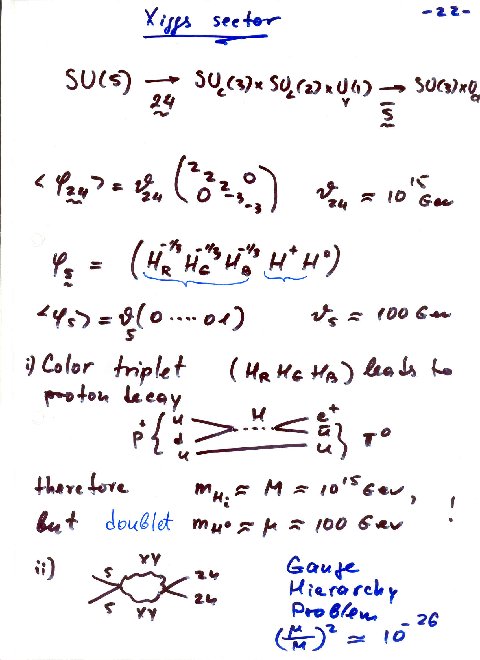 Xiggs sector
-22-
SU(5) → SU_c(3) × SU_L(2) × U_Y(1) → SU(3) × U_Q
24 5̅
<φ_24> = ϑ_24 (2 2 2 -3 -3) 0 0 ϑ_24 ≈ 10^15 Gev
φ_5 = (H_R^-1/3 H_G^-1/3 H_B^-1/3 H^+ H^0)
<φ_5> = ϑ_5 (0 .... 0 1) ϑ_5 ≈ 100 Gev
i) Color triplet (H_R H_G H_B) leads to
proton decay
p^+ { u d u H e^+ u̅ u } π^0
therefore m_Hi ≈ M ≈ 10^15 Gev,
but doublet m_H^0 ≈ μ ≈ 100 Gev !
ii) 5 5 XY XY 24 24
Gauge
Hierarchy
Problem
(μ/M)^2 ≈ 10^-26